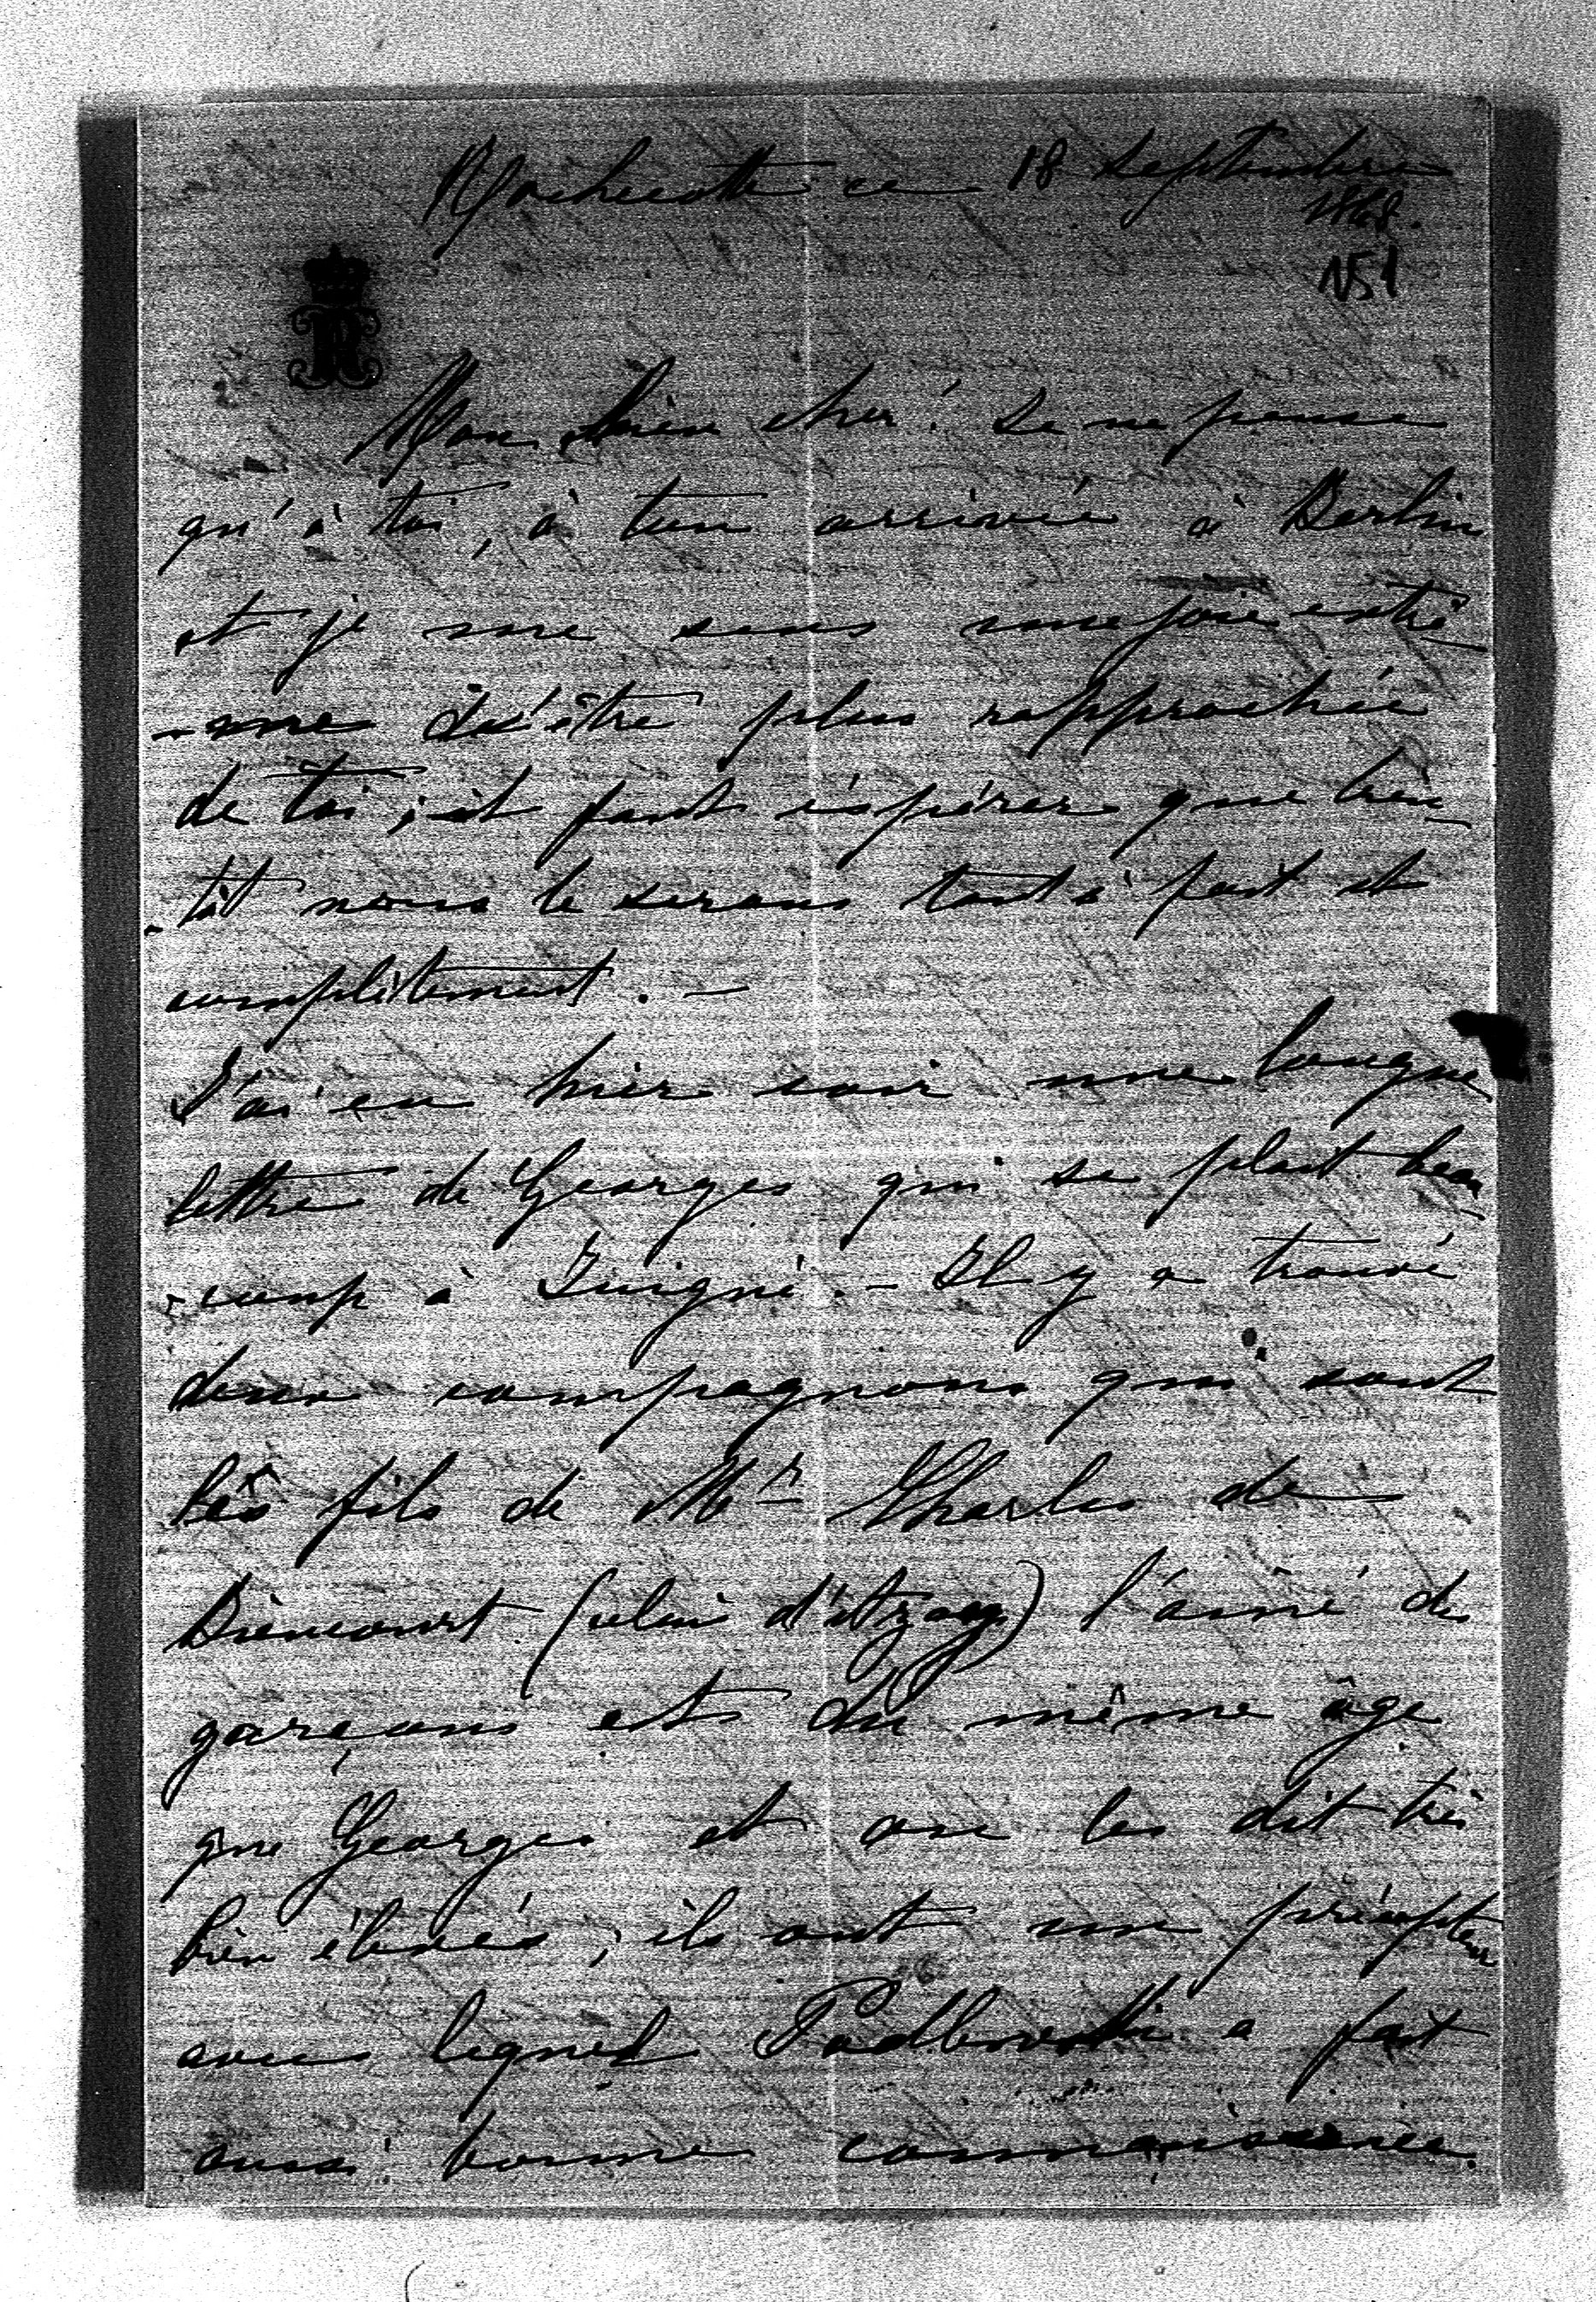 Rochecotte ce 18 Septembre
1868.
N51
R
Mon bien cher! Je ne pense
qu'à toi, à ton arrivée à Berlin
et je me sens une joie extrê-
-me d'être plus rapprochée
de toi; et faut espérer que bien-
-tôt nous le serons tout à fait et
complètement. –
J'ai eu hier soir une longue
lettre de Georges qui se plait beau-
-coup à Juigné. – Il y a trouvé
deux compagnons qui sont
les fils de Mr Charles de
Biencourt (celui d'Azay) l'ainé des
garçons est du même âge
que Georges et on les dit très
bien élevés; ils ont un précepteur
avec lequel Podbovski a fait
aussi bonne connaissance.